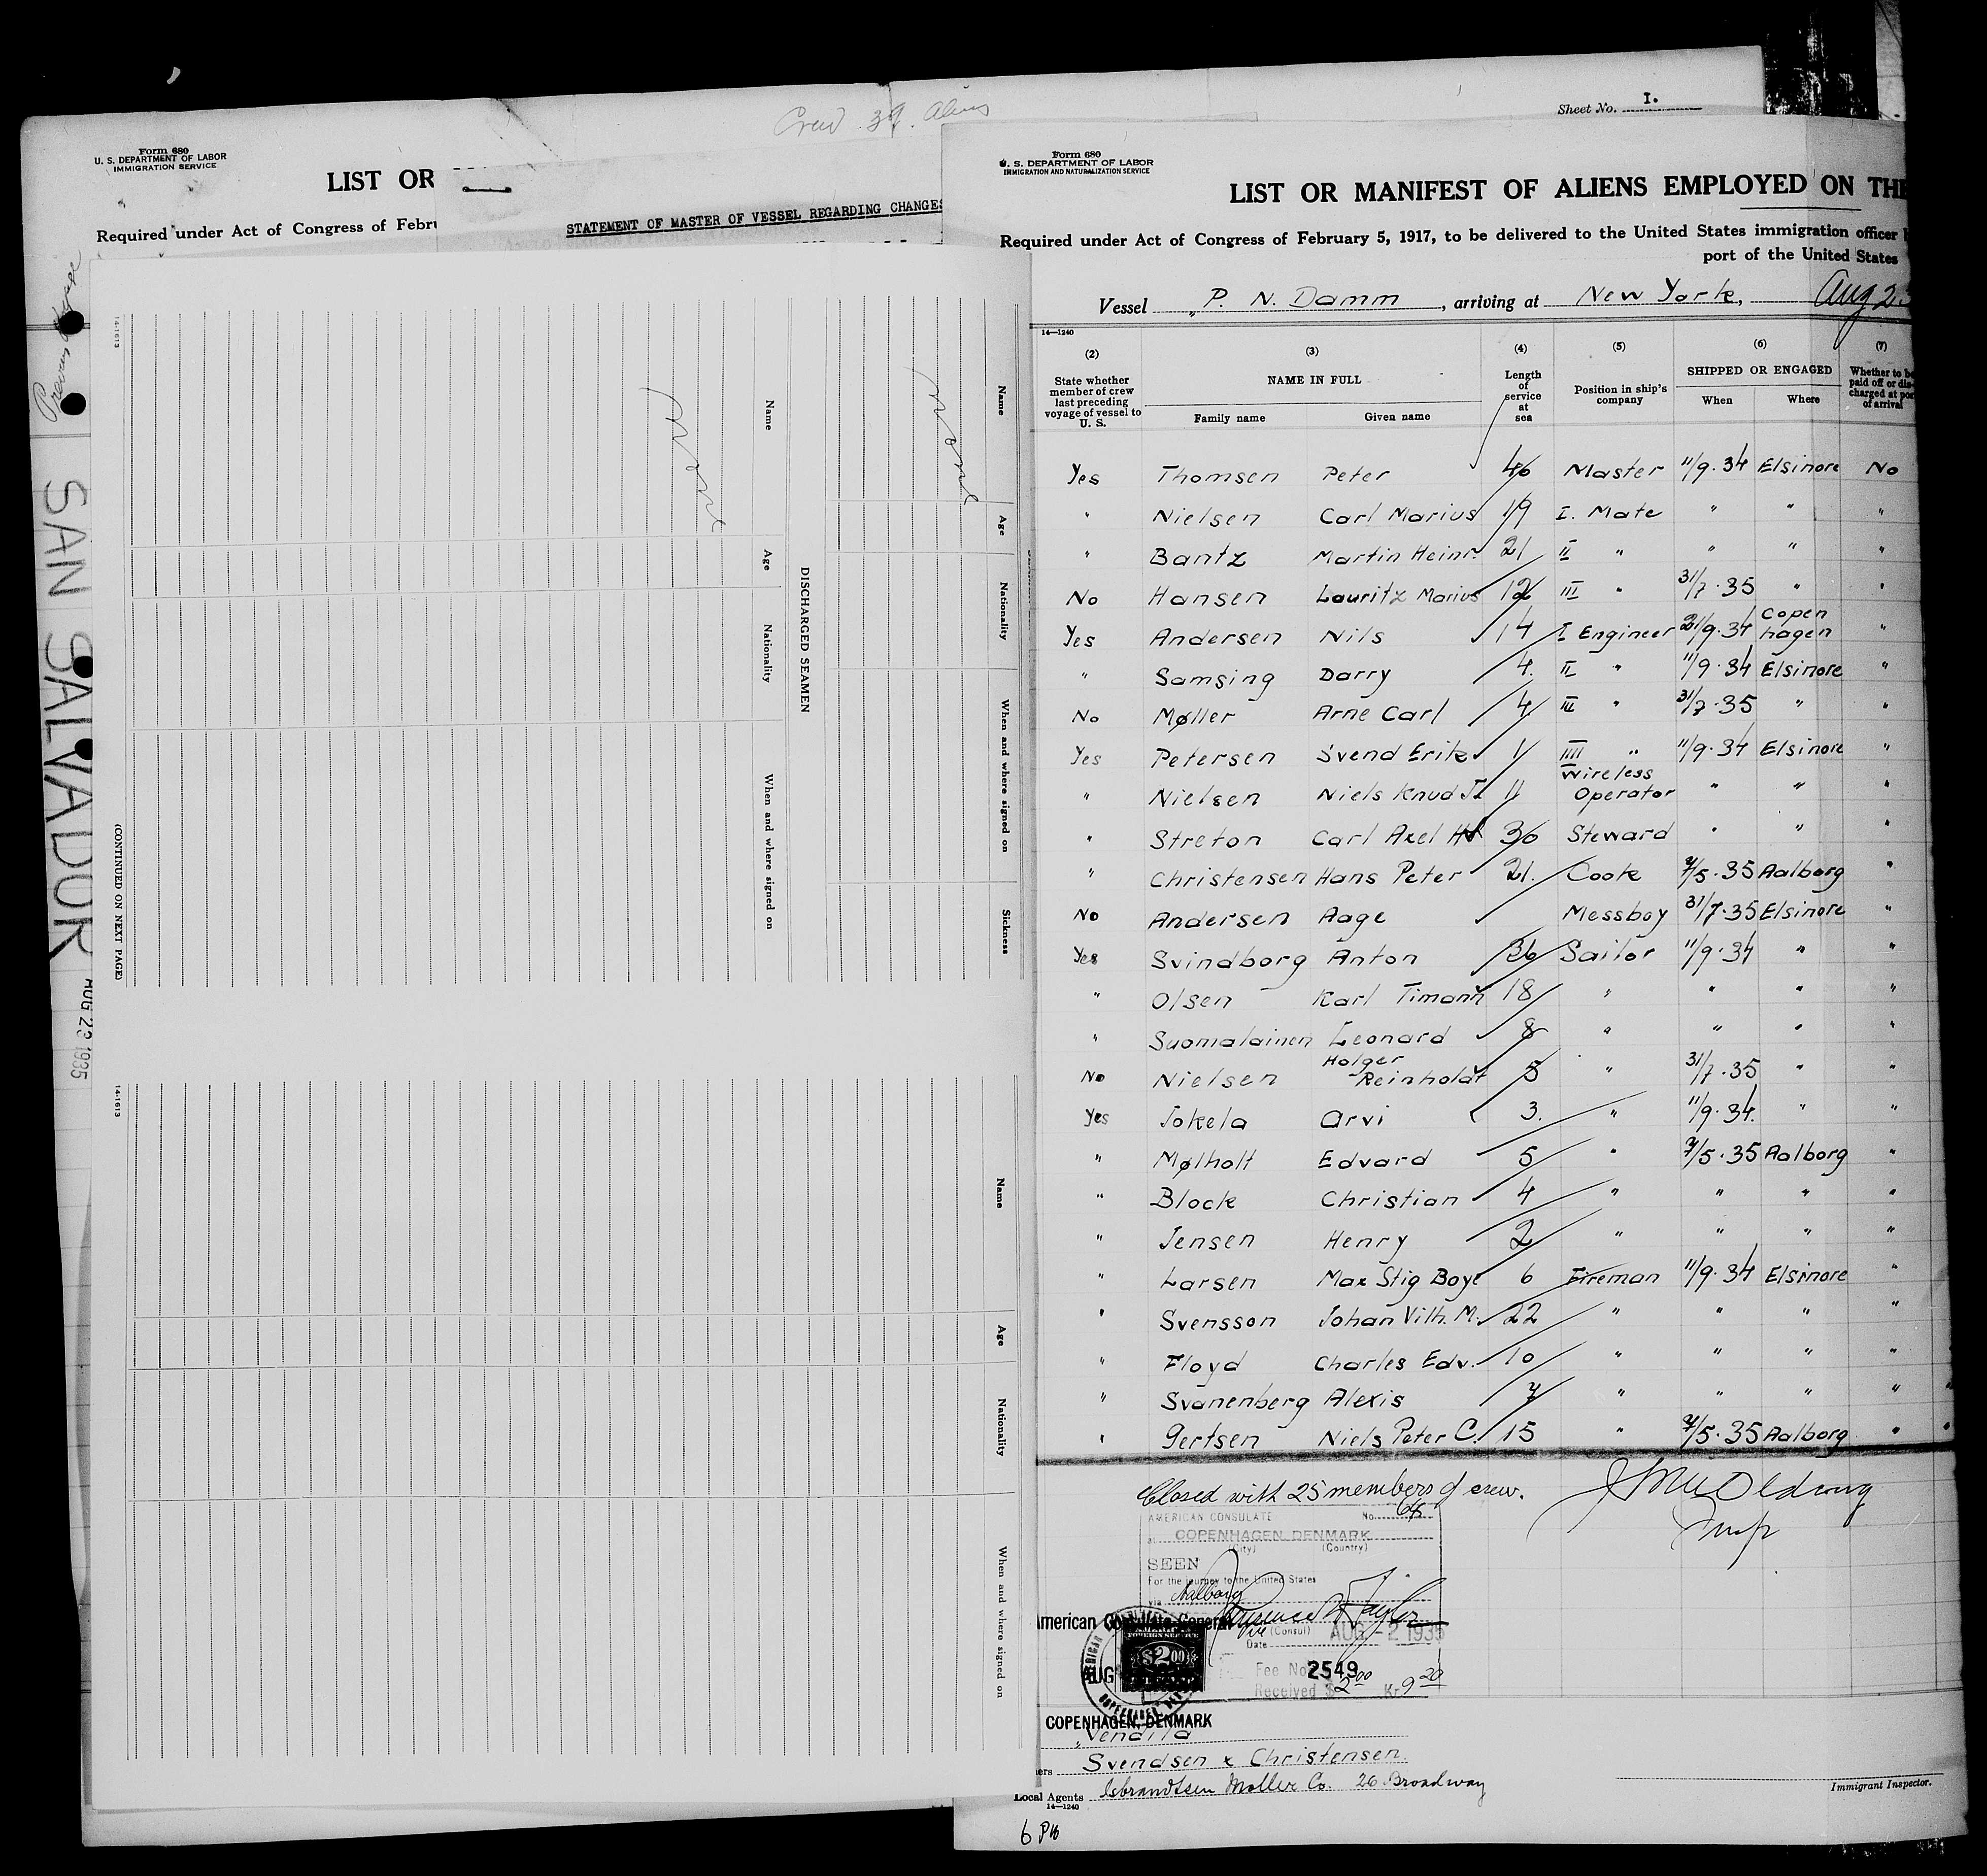 Crew 39 Aliens
Sheet No. I.
Form 680
U. S. DEPARTMENT OF LABOR
IMMIGRATION SERVICE
LIST OR
Required under Act of Congress of Febru
STATEMENT OF MASTER OF VESSEL REGARDING CHANGES
SAN SALVADOR
AUG 23 1935
14-1613
Name
Age
Nationality
When and where signed on
Sickness
None
DISCHARGED SEAMEN
Name
Age
Nationality
When and where signed on
None
(CONTINUED ON NEXT PAGE)
14-1613
Name
Age
Nationality
When and where signed on
Form 680
U. S. DEPARTMENT OF LABOR
IMMIGRATION AND NATURALIZATION SERVICE
LIST OR MANIFEST OF ALIENS EMPLOYED ON THE
Required under Act of Congress of February 5, 1917, to be delivered to the United States immigration officer
port of the United States
Vessel „P. N. Damm, arriving at New York, Aug 23
14—1240
(2) (3) (4) (5) (6) (7)
State whether member of crew last preceding voyage of vessel to U. S.
NAME IN FULL
Family name Given name
Length of service at sea
Position in ship's company
SHIPPED OR ENGAGED
When Where
Whether to be paid off or dis-charged at port of arrival
Yes Thomsen Peter 46 Master 11/9·34 Elsinore No
" Nielsen Carl Marius 19 I. Mate " " "
" Bantz Martin Heinr. 21 II " " " "
No Hansen Lauritz Marius 12 III " 31/7·35 " "
Yes Andersen Nils 14 I Engineer 21/9·34 Copenhagen "
" Samsing Darry 4. II " 11/9·34 Elsinore "
No Møller Arne Carl 4 III " 31/7·35 " "
Yes Petersen Svend Erik 1 IIII " 11/9·34 Elsinore "
" Nielsen Niels Knud J. 11 Wireless Operator " " "
" Streton Carl Axel 30 Steward " " "
" Christensen Hans Peter 21. Cook 7/5·35 Aalborg "
No Andersen Aage Messboy 31/7·35 Elsinore "
Yes Svindborg Anton 36 Sailor 11/9·34 " "
" Olsen Karl Timann 18 " " " "
" Suomalainen Leonard 8 " " " "
No Nielsen Holger Reinholdt 5 " 31/7·35 " "
Yes Jokela Arvi 3. " 11/9·34. " "
" Mølholt Edvard 5 " 7/5·35 Aalborg "
" Block Christian 4 " " " "
" Jensen Henry 2 " " " "
" Larsen Max Stig Boye 6 Fireman 11/9·34 Elsinore "
" Svensson Johan Vilh. M. 22 " " " "
" Floyd Charles Edv. 10 " " " "
" Svanenberg Alexis 7 " " " "
" Gertsen Niels Peter C. 15 " 7/5·35 Aalborg "
Closed with 25 members of crew.
Insp
AMERICAN CONSULATE No. 64
at COPENHAGEN, DENMARK
(City) (Country)
SEEN
For the journey to the United States
via Aalborg
American Consulate General
(Consul)
Date AUG - 2 1935
FOREIGN SERVICE
$2.00
AUG
Fee No. 2549
Received $2.00 Kr. 9.20
COPENHAGEN, DENMARK
„Vendila
ers Svendsen & Christensen.
Local Agents Isbrandtsen Moller Co. 26 Broadway
14—1240
Immigrant Inspector.